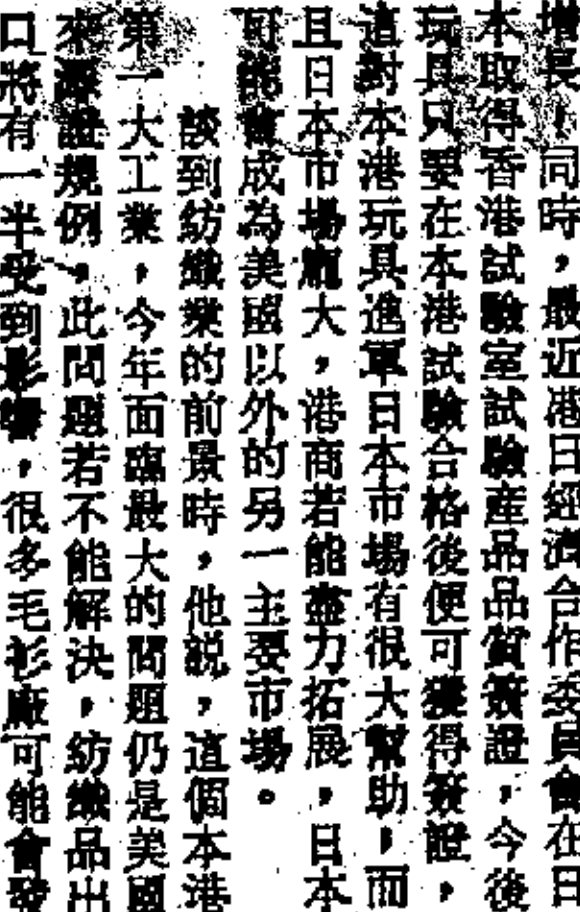 增長,同時,最近港日經濟合作委員會在日
本取得香港試驗室試驗產品品質簽證,今後
玩具只要在本港試驗合格後便可獲得簽證,
這對本港玩具進軍日本市場有很大幫助,而
且日本市場龐大,港商若能盡力拓展,日本
可能會成為美國以外的另一主要市場。
談到紡織業的前景時,他説,這個本港
第一大工業,今年面臨最大的問題仍是美國
來源證規例,此問題若不能解決,紡織品出
口將有一半受到影響,很多毛衫廠可能會發